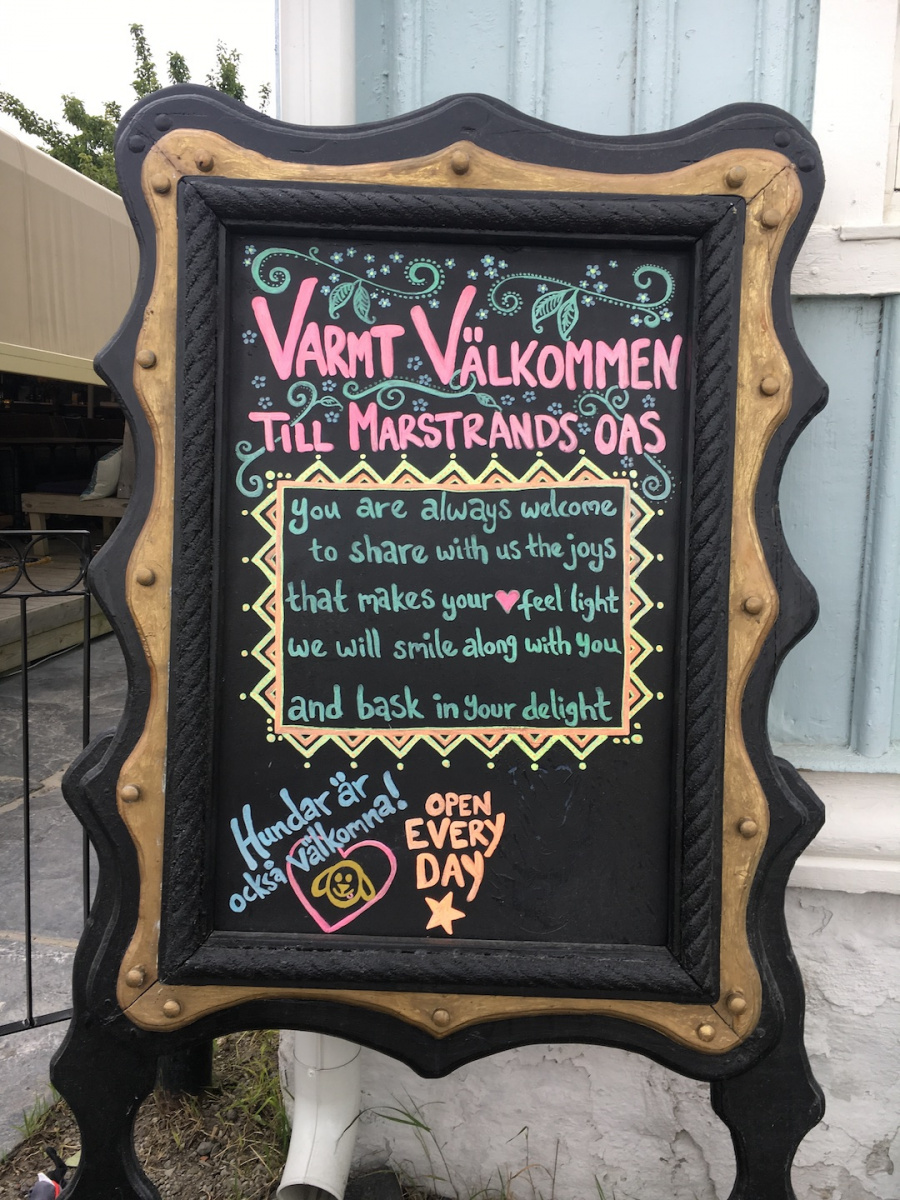 VARMT VÄLKOMMEN
TILL MARSTRANDS OAS
you are always welcome
to share with us the joys
that makes your feel light
we will smile along with you
and bask in your delight
Hundar är
också välkomna!
OPEN
EVERY
DAY